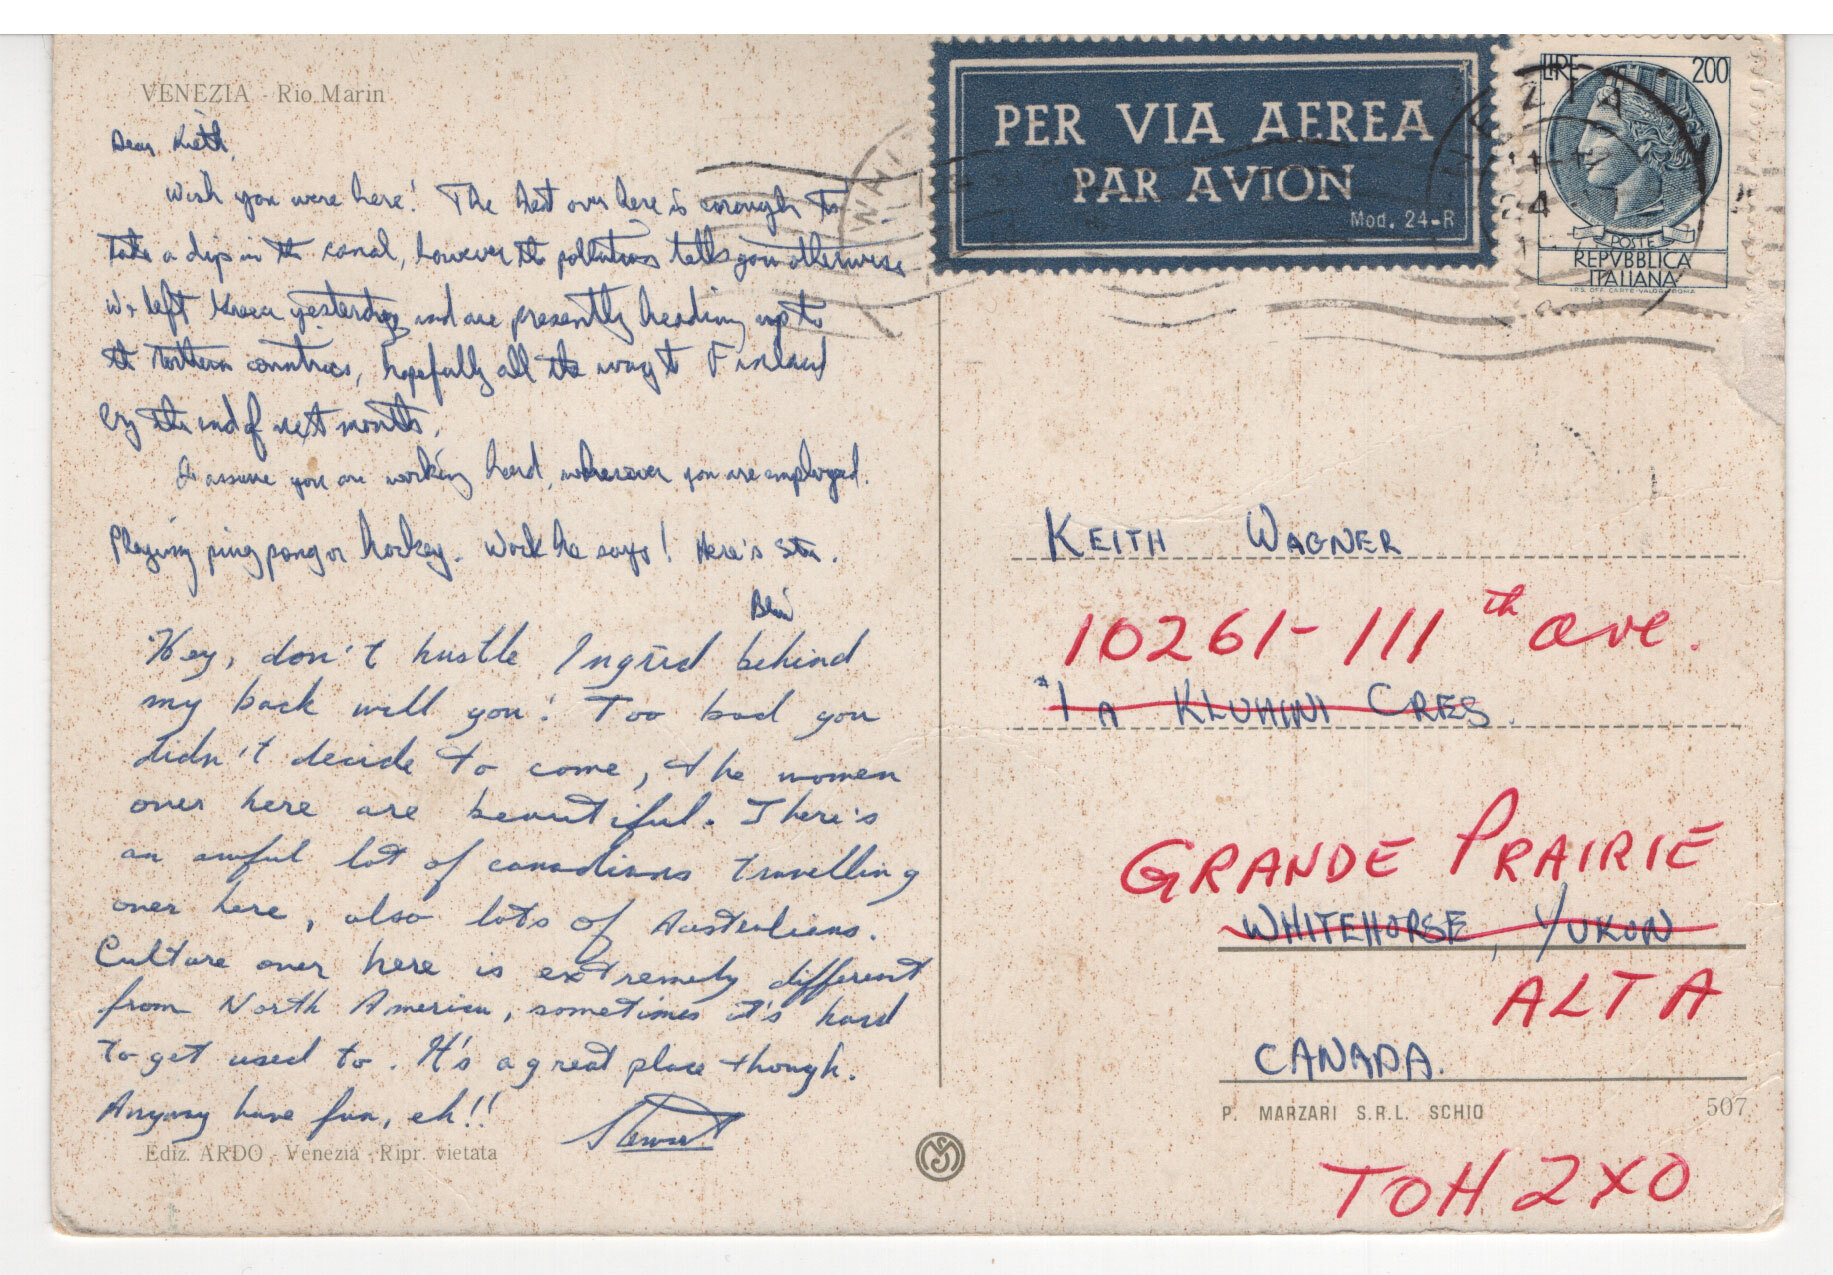 VENEZIA - Rio Marin
Dear Keith,
Wish you were here! The heat over here is enough to
take a dip in the canal, however the pollution tells you otherwise
We left Greece yesterday and are presently heading up to
the Northern countries, hopefully all the way to Finland
by the end of next month.
I assume you are working hard, wherever you are employed.
Playing ping pong or hockey. Work he says! Here's Stu.
Hey, don't hustle Ingrid behind
my back will you! Too bad you
didn't decide to come, the women
over here are beautiful. There's
an awful lot of canadians travelling
over here, also lots of Australians.
Culture over here is extremely different
from North America, sometimes it's hard
to get used to. It's a great place though.
Anyway have fun, eh!!
Stewart
Ediz. ARDO - Venezia - Ripr. vietata
PER VIA AEREA
PAR AVION
Mod. 24-R
LIRE 200
POSTE
REPVBBLICA
ITALIANA
I.P.S. OFF. CARTE-VALORI-ROMA
VENEZIA
24
WHI
KEITH WAGNER
10261-111th ave.
#1A KLUHINI CRES.
GRANDE PRAIRIE
WHITEHORSE, YUKON
ALTA
CANADA.
P. MARZARI S.R.L. SCHIO
507
TOH 2XO